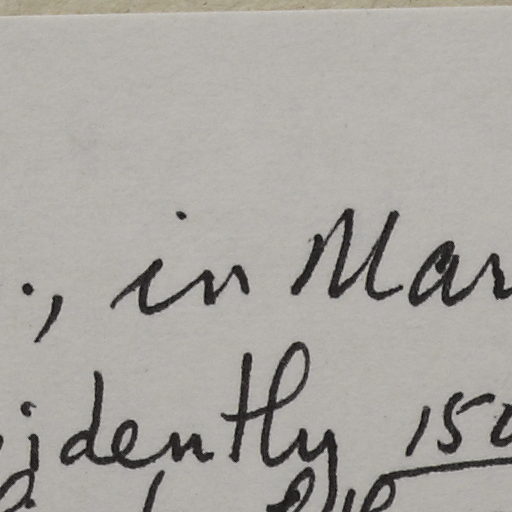 ., in Mar
idently 150